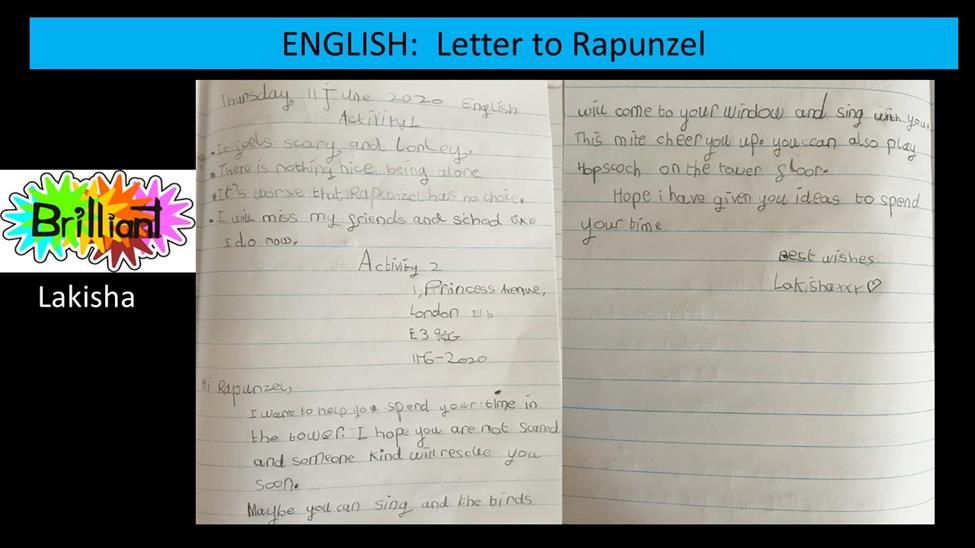 ENGLISH: Letter to Rapunzel
Brilliant
Lakisha
Thursday, 11 June 2020 English
Activity 1
. It feels scary, and lonley.
. There is nothing nice being alone
. It's worse that Rapunzel has no choise.
. I will miss my friends and school like
i do now.
Activity 2
1, Princess Avenue,
London
E3
11-6-2020
Hi Rapunzel,
I want to help you spend your time in
the tower. I hope you are not scared
and someone kind will rescue you
soon.
Maybe you can sing and the birds
will come to your window and sing with you.
This mite cheer you up. you can also play
Hopscoch on the tower floor.
Hope i have given you ideas to spend
your time
Best wishes
Lakishaxxx♡